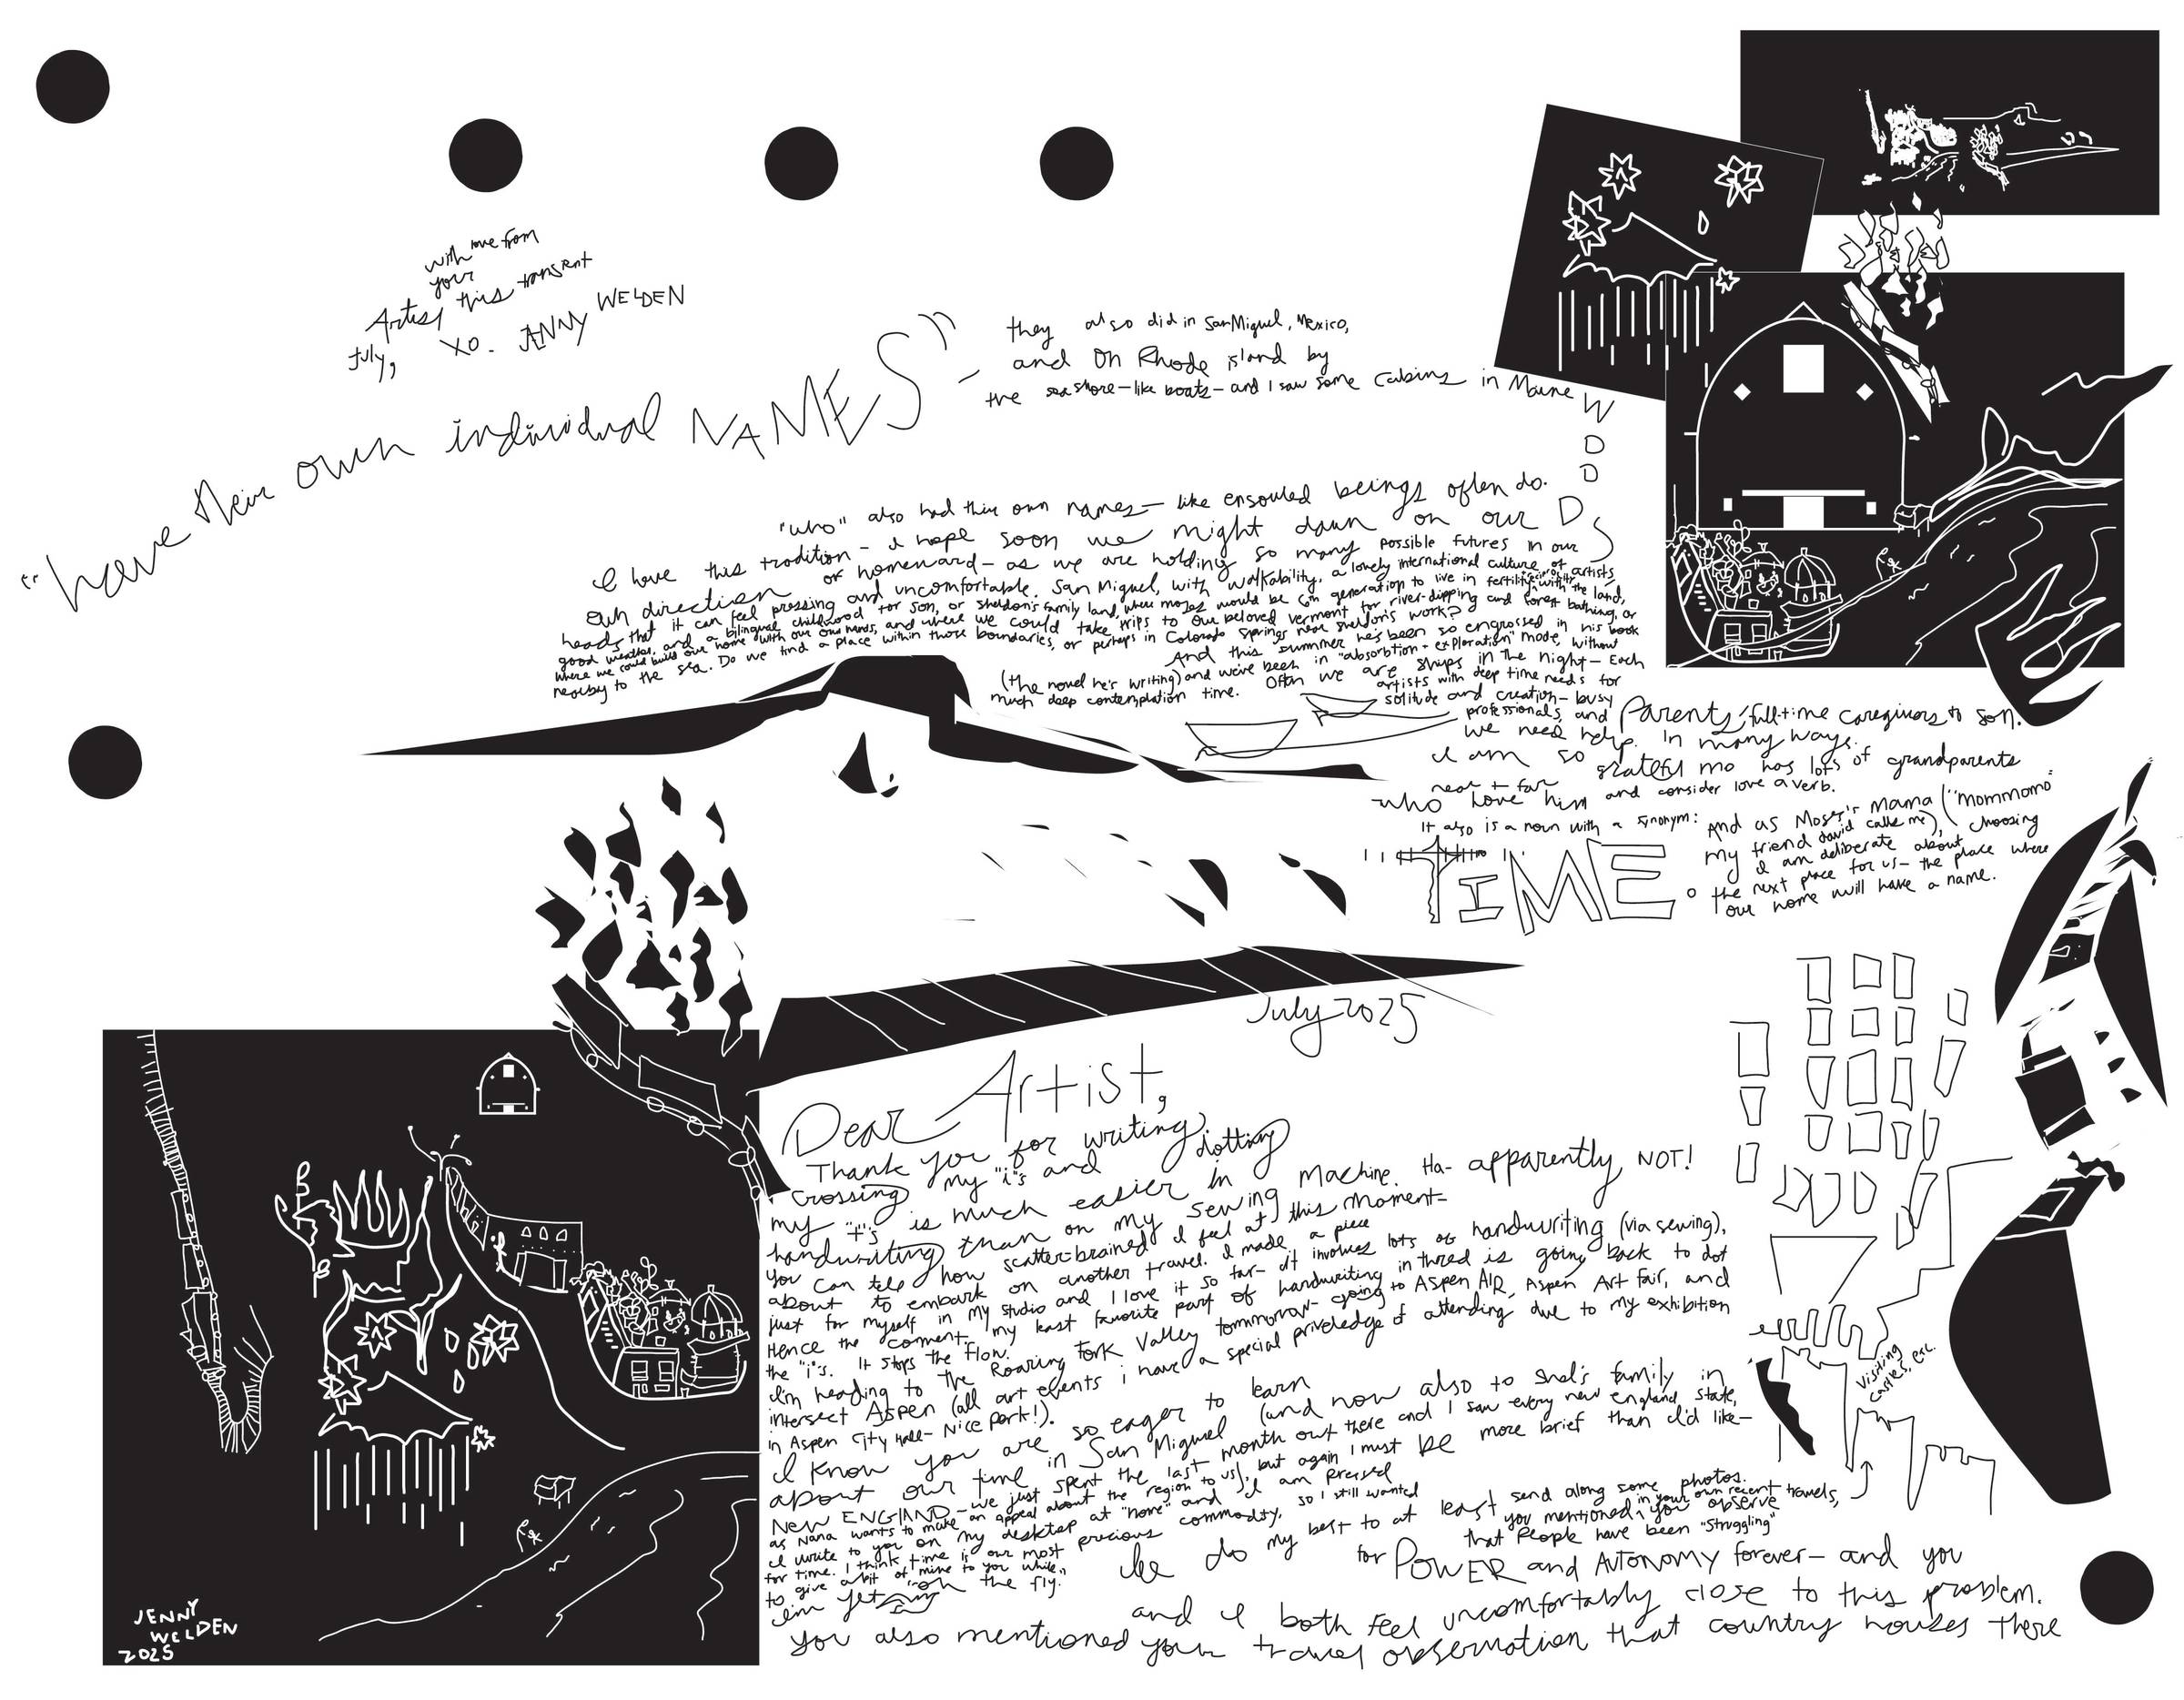 July 2025
Dear Artist,
Thank you for writing.
Crossing my "i"s and dotting
my "t"s is much easier in
handwriting than on my sewing machine. Ha- apparently NOT!
You can tell how scatterbrained I feel at this moment-
about to embark on another travel. I made a piece
just for myself in my studio and I love it so far- it involves lots of handwriting (via sewing),
Hence the comment- my least favorite part of handwriting in thred is going back to dot
the "i"s. It stops the flow.
I'm heading to the Roaring Fork Valley tommorow- going to ASPEN AIR, Aspen Art fair, and
intersect ASPEN (all art events i have a special priveledge of attending due to my exhibition
in Aspen City Hall- Nice perk!).
I know you are so eager to learn
about our time in San Miguel (and now also to Shel's family in
NEW ENGLAND- we just spent the last month out there and I saw every new england state,
as Nana wants to make an appeal about the region to us), but again I must be more brief than I'd like-
I write to you on my desktop at "home" and I am pressed
for time. I think time is our most precious commodity, so I still wanted
to give a bit of mine to you while
I'm yet "on the fly."
do my best to at least send along some photos.
you mentioned, in your own recent travels,
you observe
that People have been "struggling"
for POWER and AUTONOMY forever- and you
and I both feel uncomfortably close to this problem.
You also mentioned your travel observation that country houses there
"have their own individual NAMES"-
they also did in San Miguel, Mexico,
and On Rhode island by
the sea shore-like boats- and I saw some cabins in Maine
WOODS
"who" also had their own names- like ensouled beings often do.
I love this tradition- I hope soon we might dawn on our
own direction or homeward- as we are holding so many possible futures in our
heads that it can feel pressing and uncomfortable. San Miguel, with walkability, a lovely international culture of artists
good weather, and a bilingual childhood for son, or sheldon's family land, where moses would be generation to live in fertility with the land,
where we could build our home with our own hands, and where we could take trips to our beloved vermont for river-dipping and forest bathing, or
nearby to the sea. Do we find a place within those boundaries, or perhaps in Colorado Springs near sheldon's work?
And this summer he's been so engrossed in his book
(the novel he's writing) and we've been in "absorbtion + exploration" mode, without
much deep contemplation time. Often we are ships in the night- Each
artists with deep time needs for
solitude and creation- busy
professionals, and Parents, full-time caregivers to son.
We need help. In many ways.
I am so grateful mo has lots of grandparents
near + far
who love him and consider love a verb.
It also is a noun with a synonym:
"TIME.
And as Moses's Mama ("mommomo"
my friend david calls me),
I am deliberate about choosing
the next place for us- the place where
our home will have a name.
with love from
your
Artist this
July,
XO. JENNY WELDEN
visiting
castles, etc.
JENNY
WELDEN
2025